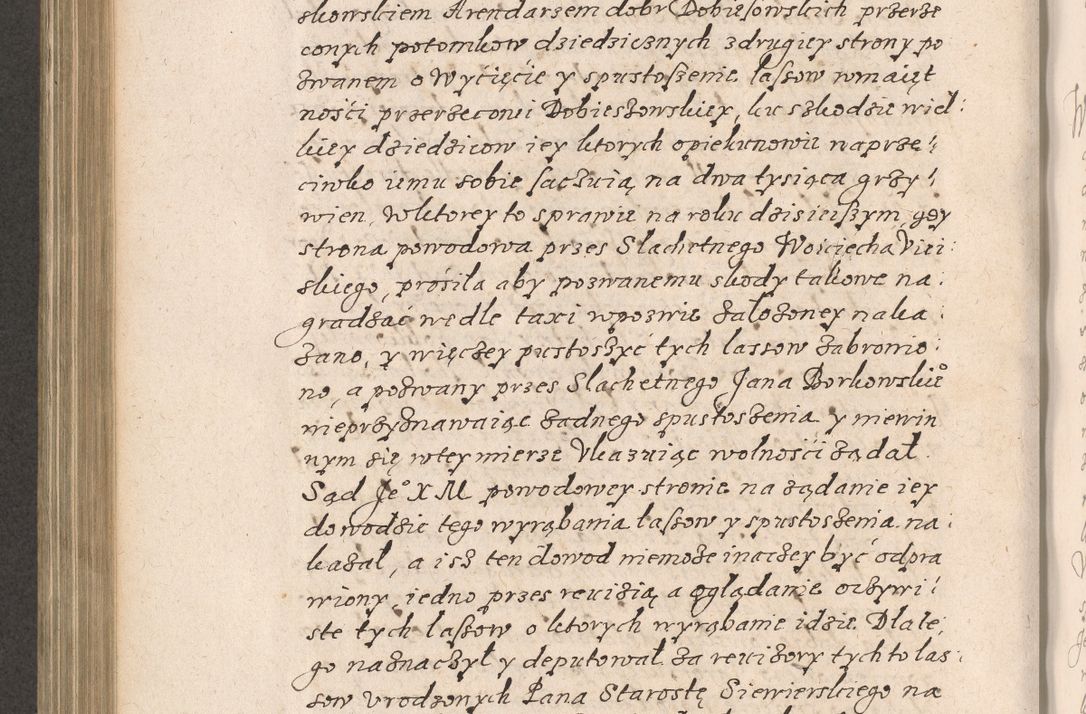 skowskiem Arendarzem dobr Dobiesowskich przerze
conych potomkow dziedzicznych z drugiey strony po
zwanem o Wycięcie y spustoszenie lassow w maięt
ności przerzeconei Dobieszowskiey, ku szkodzie wiel
kiey dziedzicow iey ktorych opiekunowie naprze
ciwko iemu sobie saczuią na dwa tysiąca grzy
wien, W ktorey to sprawie na roku dzisieiszym, gdy
strona powodowa przez Slachetnego Woiciecha
skiego, prosiła aby pozwanemu skody takowe na
gradzać wedle taxi w pozwie założoney naka
zano, y więczey pustoszyć tych lassow zabronio
no, a pozwany przez Slachetnego Jana Borkowskieo
nieprzyznawaiąc żadnego spustoszenia y niewin
nym się w tey mierze Ukazuiąc wolności żądał
Sąd Jeo X M powodowey stronie na żądanie iey
dowodzic tego wyrąbania lassow y spustoszenia na
kazał, a isz ten dowod niemoże inaczey być odpra
wiony, iedno przez rewizią, a oglądanie oczywi
ste tych lassow o ktorych wyrąbanie idzie. Dlate
go naznaczył y deputował za rewizory tych to las
sow Urodzonych Pana Starostę Siewierskiego na